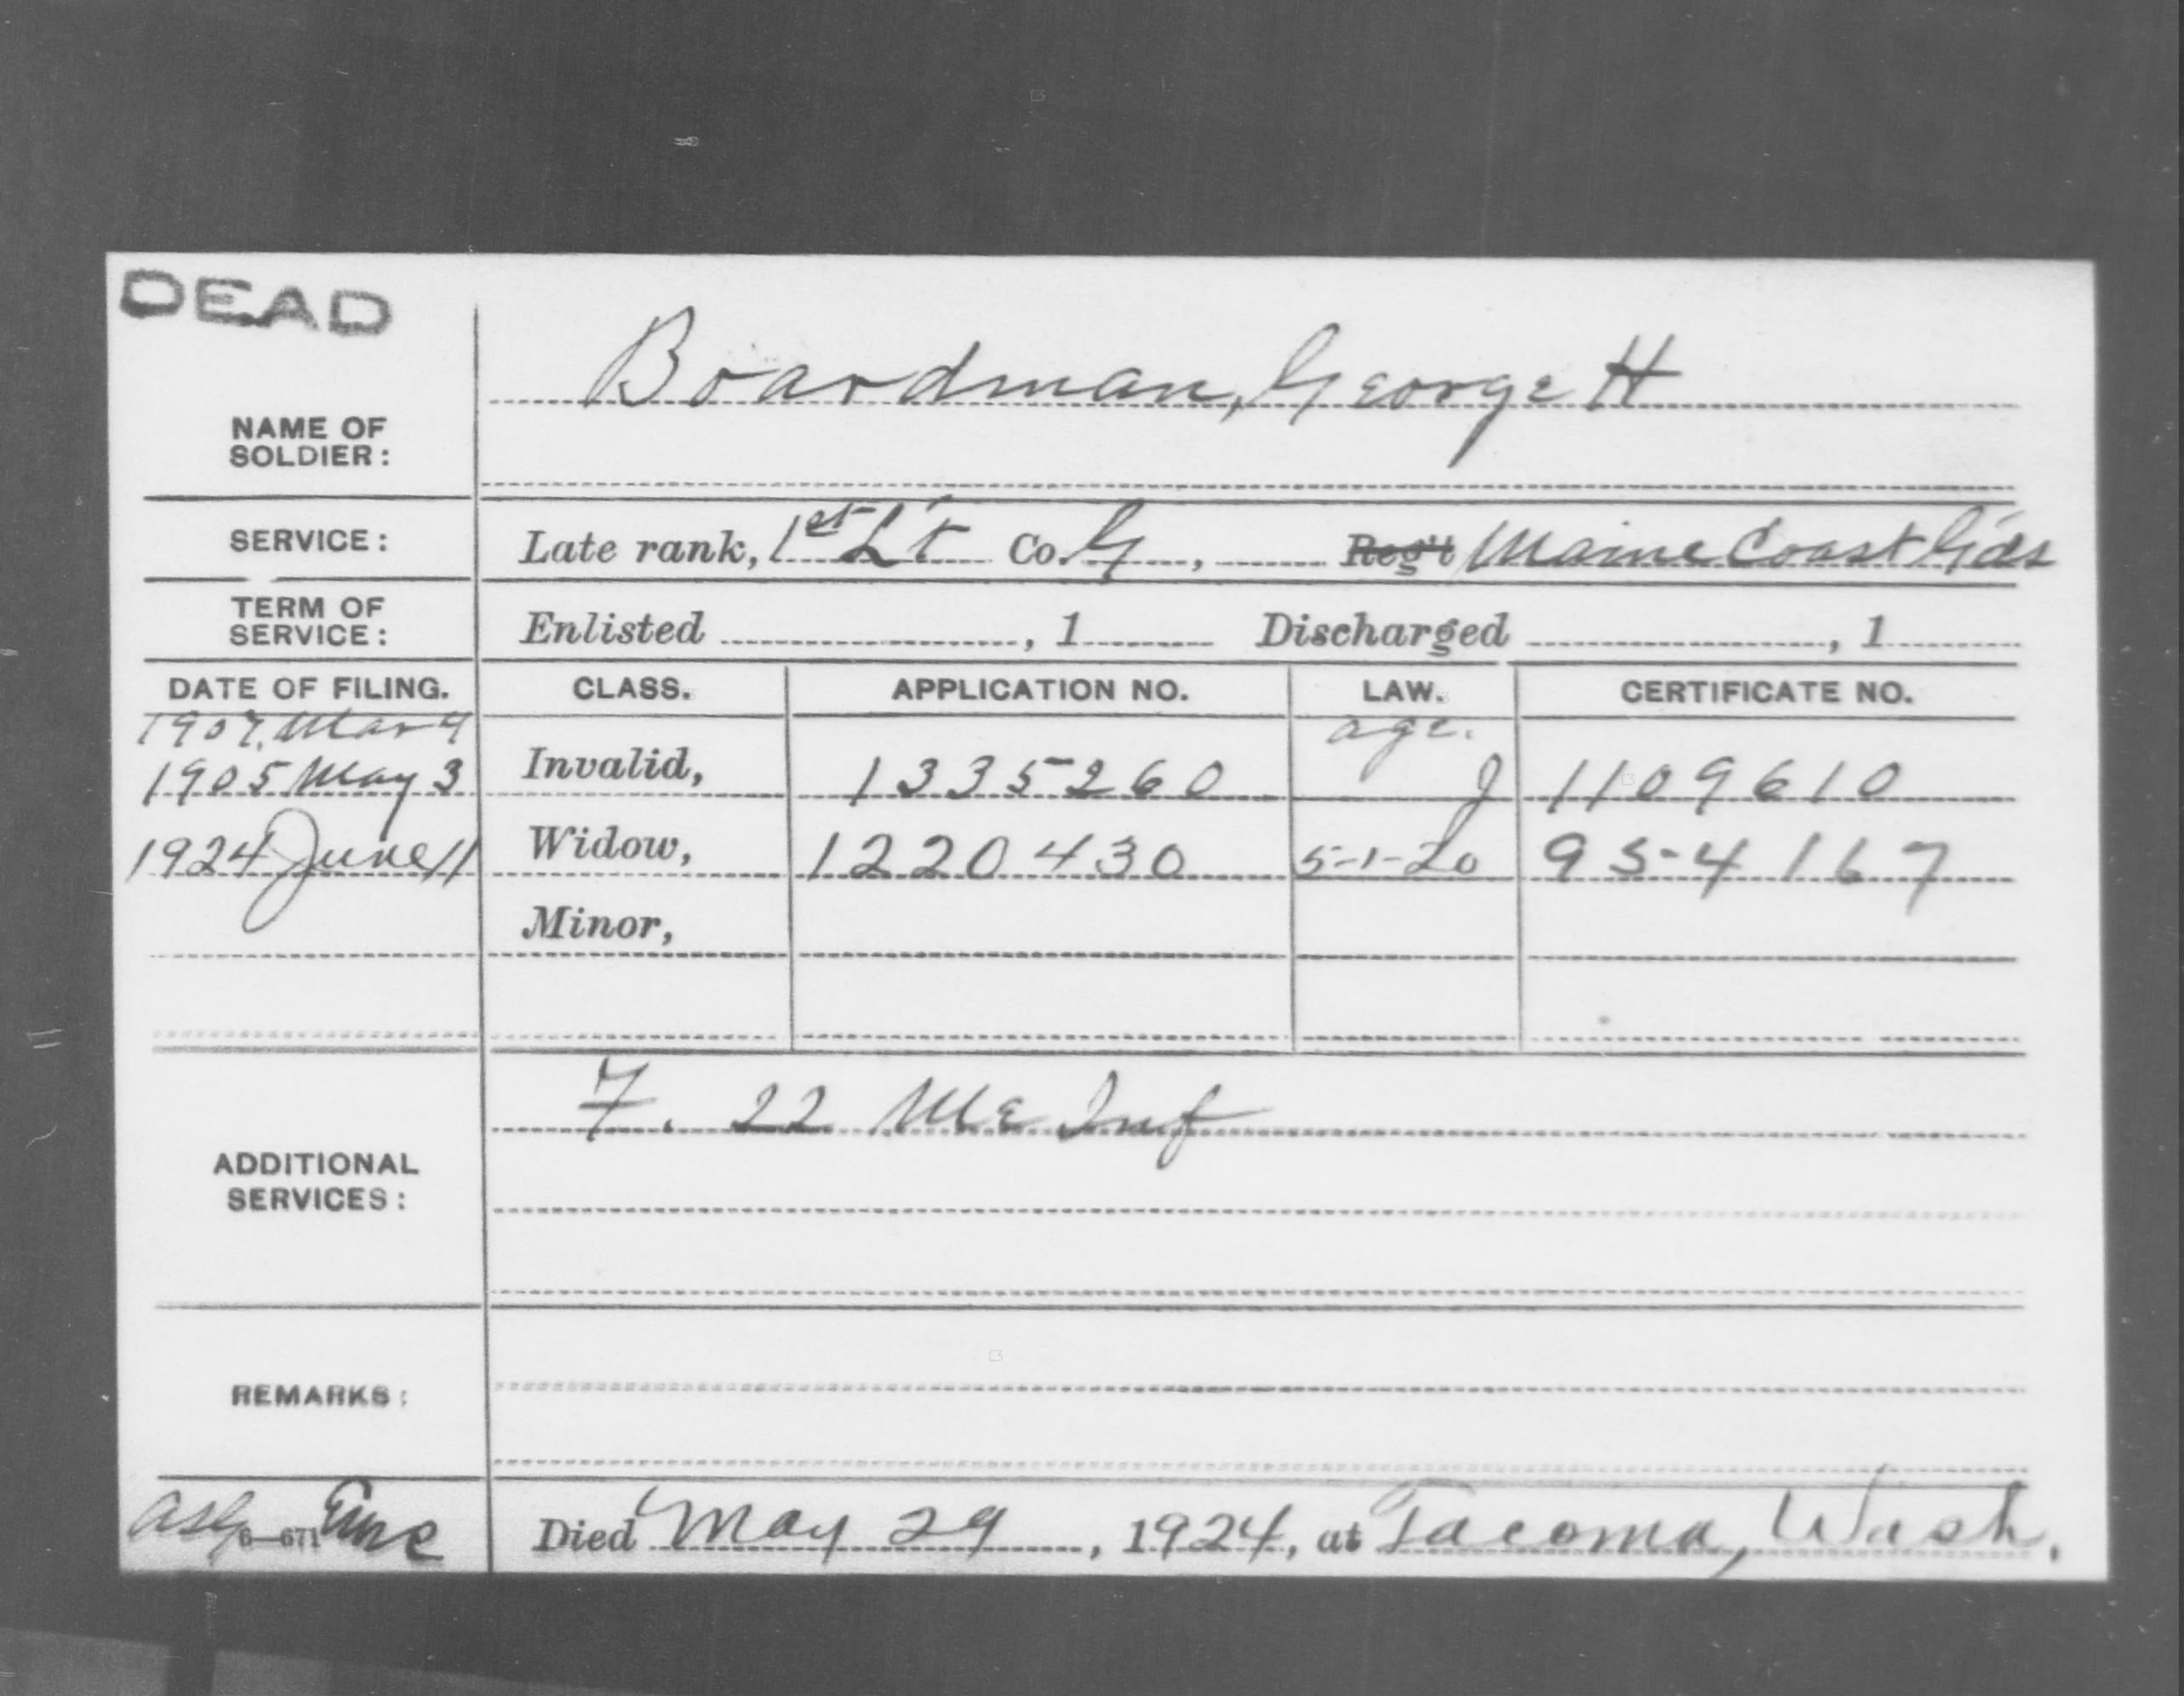 DEAD
Boardman, George H
NAME OF
SOLDIER:
SERVICE: Late rank, 1st Lt Co. G, Reg't Maine Coast Gds
TERM OF
SERVICE: Enlisted , 1 Discharged , 1
DATE OF FILING. CLASS. APPLICATION NO. LAW. CERTIFICATE NO.
1907, Mar 9 age.
1905 May 3 Invalid, 1335260 J 1109610
1924 June 11 Widow, 1220430 5-1-20 954167
Minor,
F. 22 Me Inf
ADDITIONAL
SERVICES:
REMARKS:
6—671 Died May 29, 1924, at Tacoma, Wash.